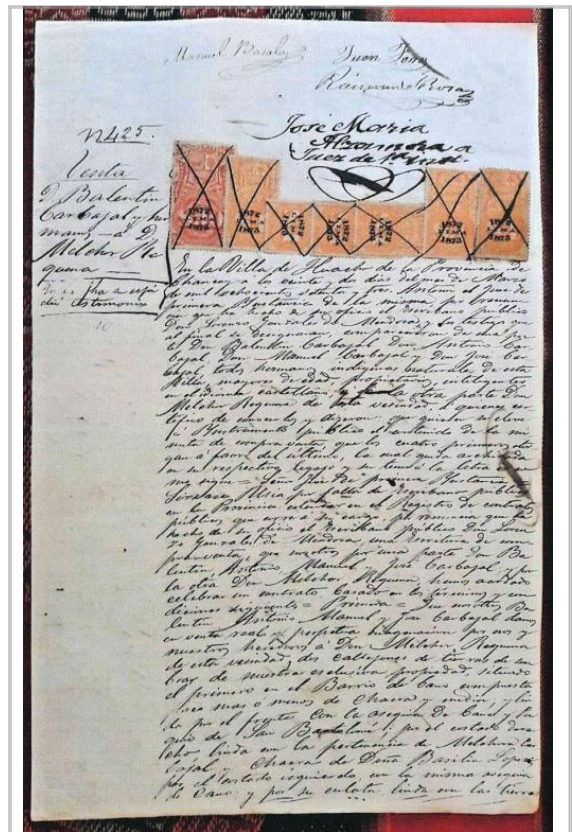 Manuel Rosales Juan Torres
Raimundo Rosas
José Maria
Alzamora a
Juez de 1ª Inst.
N425.
Venta
D. Balentin
Carbajal y her
mano - a D.
Melchor Re
quena
testimonio
1872 1873
En la Villa de Huacho de la Provincia de
Chancay a los veinte y dos dias del mes de Marzo
de mil ochocientos setenta y tres. Ante mi el Juez de
primera Instancia de la misma por
que ha hecho de su oficio el Escribano publico
Don Lorenzo Gonzales de Mendoza y los testigos que
al final se comparecieron de una par
te Don Balentin Carbajal Don Antonio Car
bajal Don Manuel Carbajal y Don José Car
bajal, todos hermanos indigenas naturales de esta
Villa, mayores de edad, propietarios, inteligentes
en el idioma castellano, y de la otra parte Don
Melchor Requena de esta vecindad, a quienes cer
tifico de conocerlos, y dijeron que querian
a Instrumento publico el contenido de la mi
nuta de compra venta, que los cuatro primeros otor
gan á favor del ultimo, la cual queda archivada
en su respectivo legajo y su tenor á la letra es co
mo sigue = Señor Juez de primera Instancia =
Sirvase Usia por falta de Escribano publico
en la Provincia estender en el Registro de contratos
publicos que corre á su cargo por renuncia que ha
hecho de su oficio el Escribano publico Don Loren
zo Gonzales de Mendoza, una Escritura de com
pra venta, que nosotros por una parte Don Ba
lentin, Antonio, Manuel y José Carbajal y por
la otra Don Melchor Requena, hemos acordado
celebrar un contrato basado en los terminos y con
diciones siguientes = Primera = Que nosotros Ba
lentin Antonio Manuel y José Carbajal damos
en venta real y perpetua enagenacion por nos y
nuestros herederos á Don Melchor Requena
de esta vecindad, dos callejones de tierras de
de nuestra esclusiva propiedad, situado
el primero en el Barrio de Cano compuesto
mas ó menos de chacra y media, y lin
da por el frente con la asequia de Cano y
de San Bartolomé; por el costado dere
cho linda con la pertenencia de Melchora Car
bajal y Chacra de Doña Basilia Lopez
por el costado izquierdo, con la misma asequia
de Cano, y por su culata, linda con las tierras